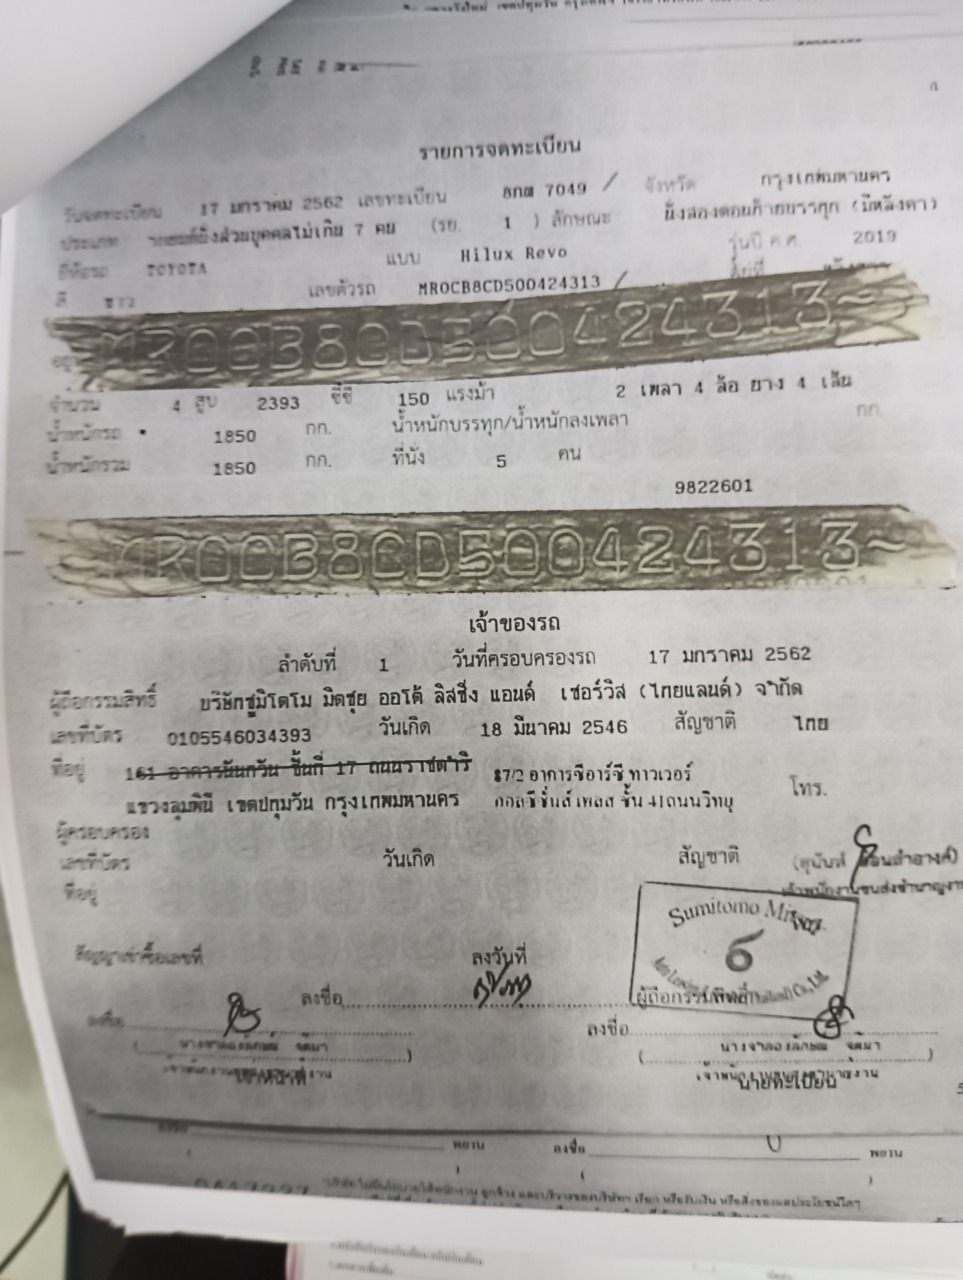 รายการจดทะเบียน
วันจดทะเบียน 17 มกราคม 2562 เลขทะเบียน 8กฒ 7049 / จังหวัด กรุงเทพมหานคร
ประเภท รถยนต์นั่งส่วนบุคคลไม่เกิน 7 คน (รย. 1 ) ลักษณะ นั่งสองตอนท้ายบรรทุก (มีหลังคา)
ยี่ห้อรถ TOYOTA แบบ Hilux Revo รุ่นปี ค.ศ. 2019
สี ขาว เลขตัวรถ MR0CB8CD500424313 / อยู่ที่
MR0CB8CD500424313~
จำนวน 4 สูบ 2393 ซีซี 150 แรงม้า 2 เพลา 4 ล้อ ยาง 4 เส้น
น้ำหนักรถ • 1850 กก. น้ำหนักบรรทุก/น้ำหนักลงเพลา กก.
น้ำหนักรวม 1850 กก. ที่นั่ง 5 คน
9822601
MR0CB8CD500424313~
เจ้าของรถ
ลำดับที่ 1 วันที่ครอบครองรถ 17 มกราคม 2562
ผู้ถือกรรมสิทธิ์ บริษัทซูมิโตโม มิตซุย ออโต้ ลิสซิ่ง แอนด์ เซอร์วิส (ไทยแลนด์) จำกัด
เลขที่บัตร 0105546034393 วันเกิด 18 มีนาคม 2546 สัญชาติ ไทย
ที่อยู่ 161 อาคารนันทวัน ชั้นที่ 17 ถนนราชดำริ 87/2 อาคารซีอาร์ซี ทาวเวอร์
แขวงลุมพินี เขตปทุมวัน กรุงเทพมหานคร ออลซีซั่นส์ เพลส ชั้น 41 ถนนวิทยุ โทร.
ผู้ครอบครอง
เลขที่บัตร วันเกิด สัญชาติ
ที่อยู่ เจ้าพนักงานขนส่งชำนาญงาน
Sumitomo Mitsui
สัญญาเช่าซื้อเลขที่ ลงวันที่
ลงชื่อ ผู้ถือกรรมสิทธิ์
ลงชื่อ ลงชื่อ
เจ้าหน้าที่ นายทะเบียน
พยาน ลงชื่อ พยาน